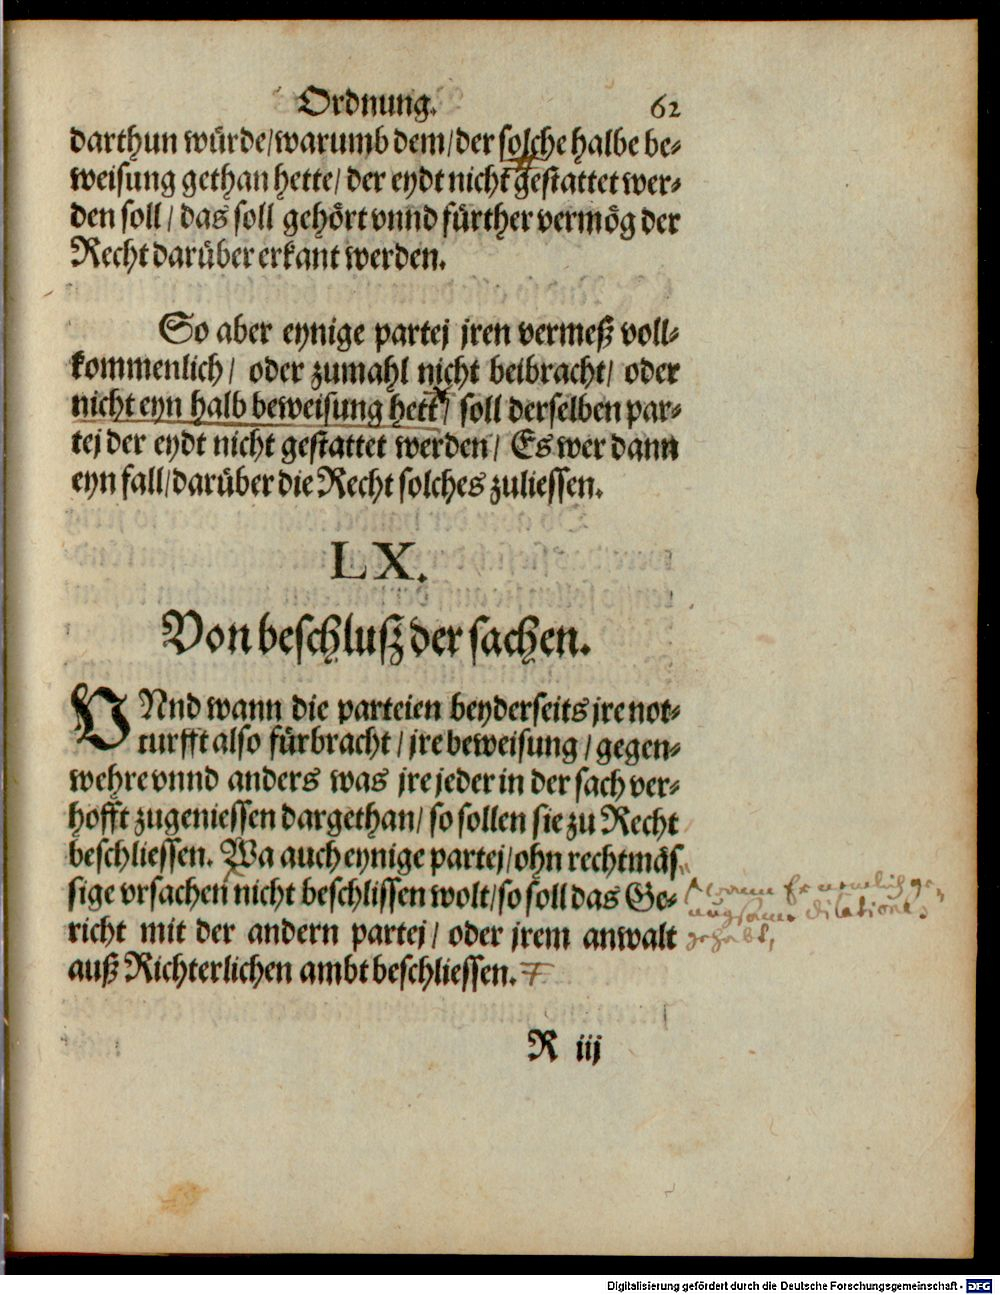 Ordnung. 62
darthun würde/warumb dem/der solche halbe be-
weisung gethan hette/ der eydt nicht gestattet wer-
den soll/ das soll gehört vnnd fürther vermög der
Recht darüber erkant werden.
So aber eynige partej jren vermeß voll-
kommenlich/ oder zumahl nicht beibracht/ oder
nicht eyn halb beweisung hett/ soll derselben par-
tej der eydt nicht gestattet werden/ Es wer dann
eyn fall/darüber die Recht solches zuliessen.
LX.
Von beschluß der sachen.
VNnd wann die parteien beyderseits jre not-
turfft also fürbracht/ jre beweisung/ gegen-
wehre vnnd anders was jre jeder in der sach ver-
hofft zugeniessen dargethan/ so sollen sie zu Recht
beschliessen. Wa auch eynige partej/ohn rechtmäs
sige vrsachen nicht beschlissen wolt/so soll das Ge-
richt mit der andern partej/ oder jrem anwalt
auß Richterlichen ambt beschliessen.
wann Er nemlich ge-
nugsame dilationes
gehabt,
R iij
Digitalisierung gefördert durch die Deutsche Forschungsgemeinschaft - DFG